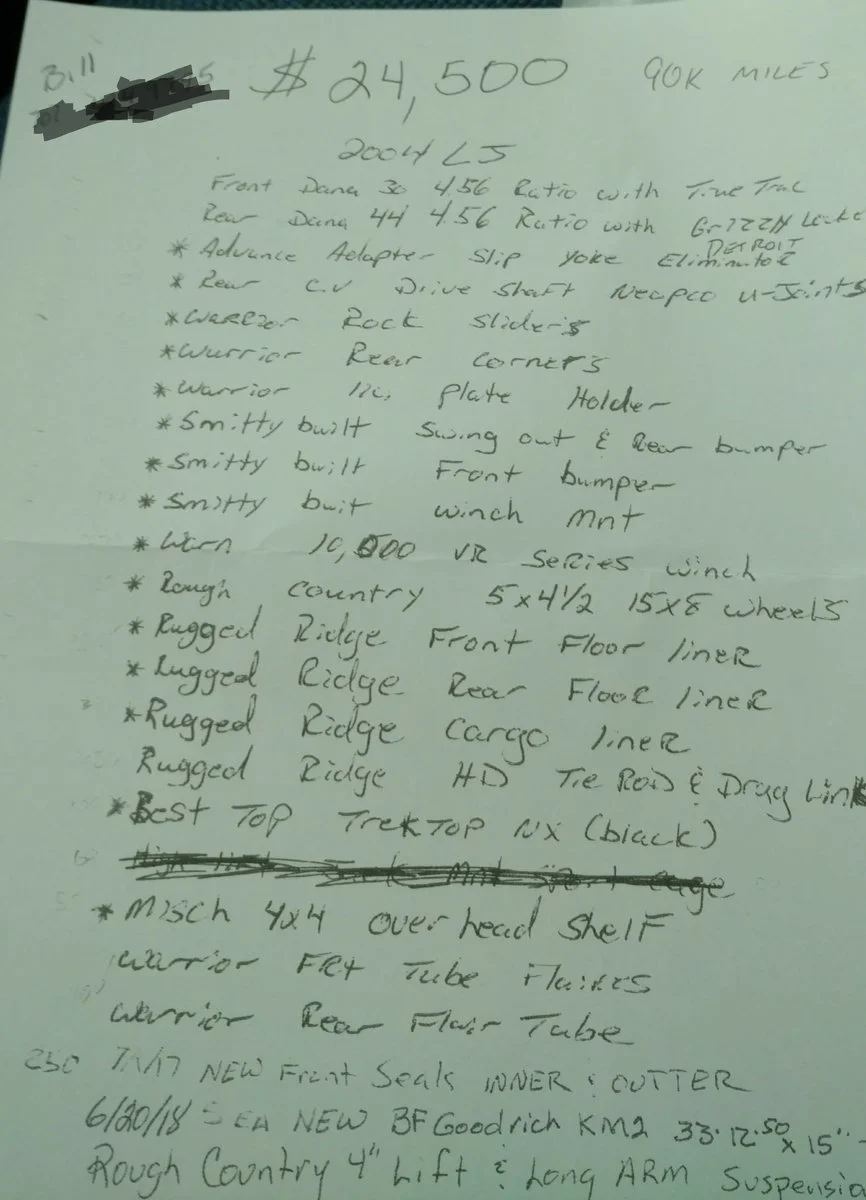 Bill $ 24,500 90K MILES
2004 LJ
Front Dana 30 4.56 Ratio with True Trac
Rear Dana 44 4.56 Ratio with Grizzly Locke
DETROIT
* Advance Adapter Slip Yoke Eliminator
* Rear C.V Drive Shaft Neapco U-Joints
* Warrior Rock Sliders
* Warrior Rear Corners
* Warrior lic, plate Holder
* Smitty built Swing out & Rear bumper
* Smitty built Front bumper
* Smitty buit winch mnt
* Warn 10,000 VR SERIES winch
* Rough Country 5x4 1/2 15x8 wheels
* Rugged Ridge Front Floor lineR
* Rugged Ridge Rear FlooR lineR
* Rugged Ridge Cargo lineR
Rugged Ridge HD Tie Rod & Drag Link
* Best Top TrekTop NX (black)
* Misch 4x4 over head shelf
Warrior FRt Tube Flaires
Warrior Rear Flair Tube
250 7/1/17 NEW Front Seals INNER & OUTTER
6/20/18 5 EA NEW BFGoodrich KM2 33·12.50 x 15"
Rough Country 4" Lift & Long ARM Suspensio